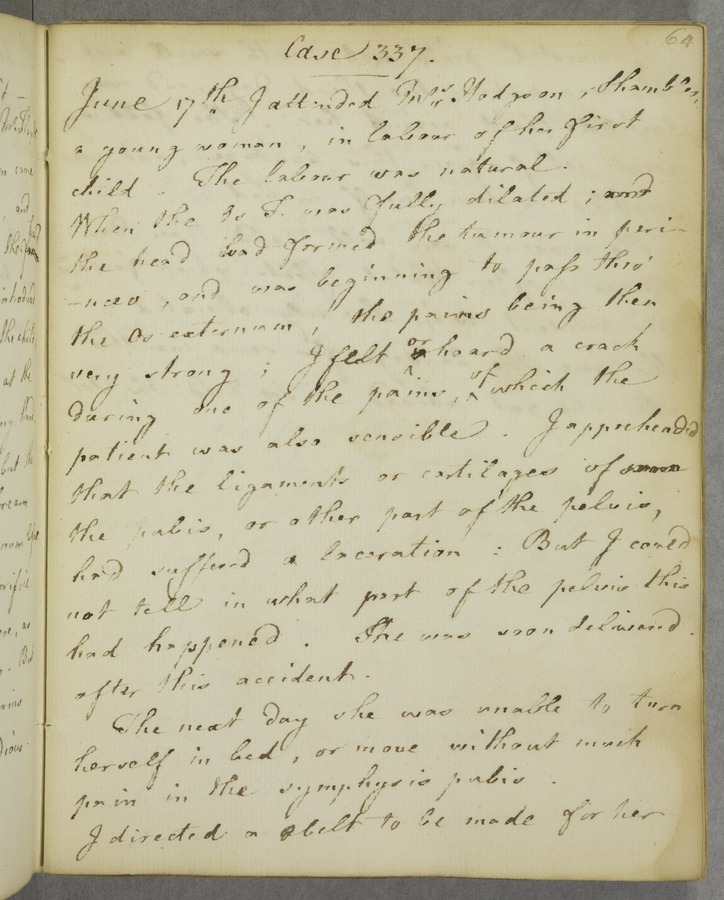 64
Case 337.
June 17th I attended Mrs Hodgson, Shambles,
a young woman, in labour of her first
child. The labour was natural.
When the Os T. was fully dilated; and
the head had formed the tumour in peri-
-neo, and was beginning to pass thro'
the Os externum, the pains being then
very strong; I felt or heard a crack
during one of the pains, of which the
patient was also sensible. I apprehended
that the ligaments or cartilages of
the pubis, or other part of the pelvis,
had suffered a laceration: But I could
not tell in what part of the pelvis this
had happened. She was soon delivered
after this accident.
The next day she was unable to turn
herself in bed, or move without much
pain in the symphysis pubis.
I directed a belt to be made for her